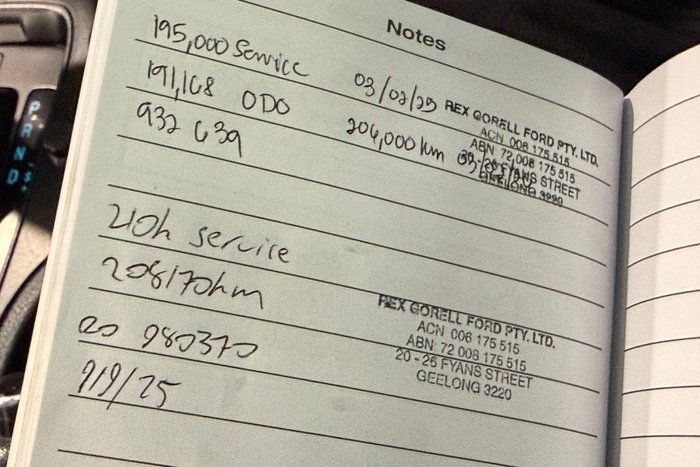 Notes
195,000 Service 03/02/25
191,168 ODO 206,000 km
932 639
REX GORELL FORD PTY. LTD.
ACN 006 175 515
ABN 72 008 175 515
20 - 26 FYANS STREET
GEELONG 3220
210k service
208170km
RO 980370
9/9/25
REX GORELL FORD PTY. LTD.
ACN 006 175 515
ABN: 72 008 175 515
20 - 26 FYANS STREET
GEELONG 3220
P
R
N
D S